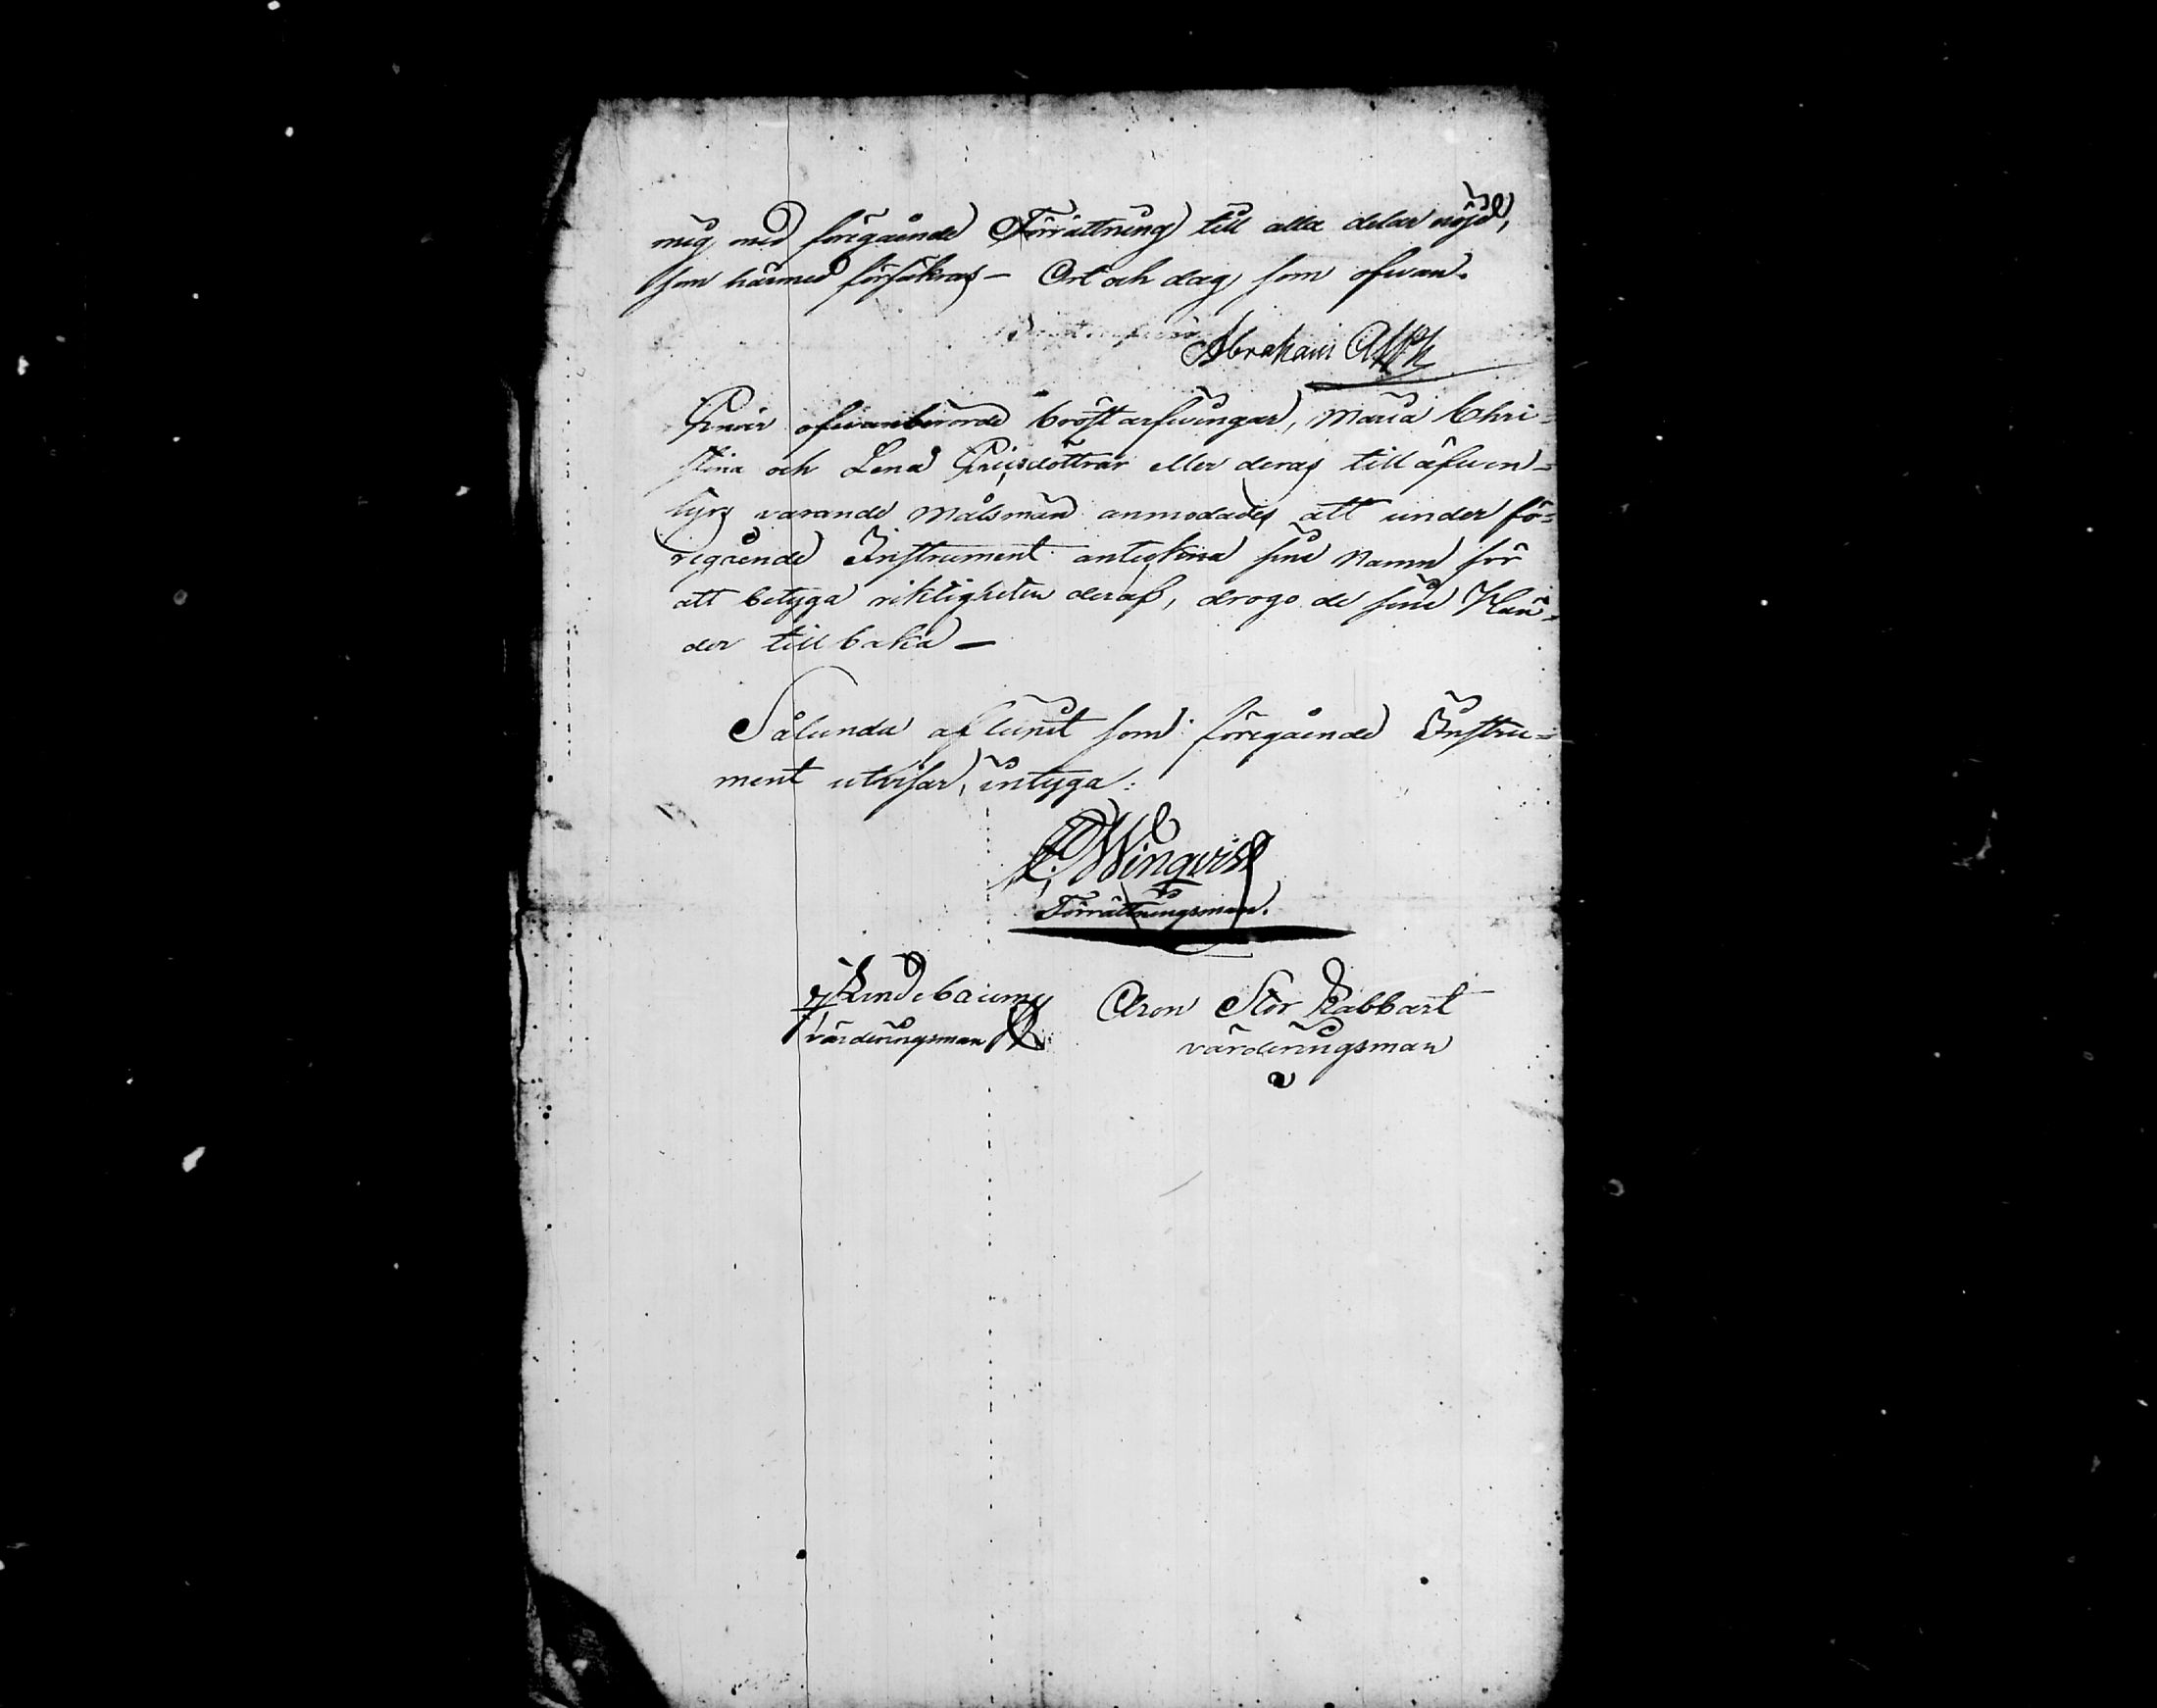 mig med föregående Förrättning till alla delar nöjd,
som härmed försäkras – Ort och dag som ofvan.
Abraham
ofvanberörde bröstarfvingar, Maria Chri=
stina och Lena Griisdöttrar eller deras till äfven=
tyrs varande målsmän anmodades att under fö=
regående Instrument anteckna sina Namn för
att betyga riktigheten deraf, drogo de sina Hän=
der tillbaka –
Sålunda aflupit som föregående Instru=
ment utvisar, intyga:
Winqvist
Förrättningsman.
Lindebaum Aron Stor Rabbart
värderingsman värderingsman